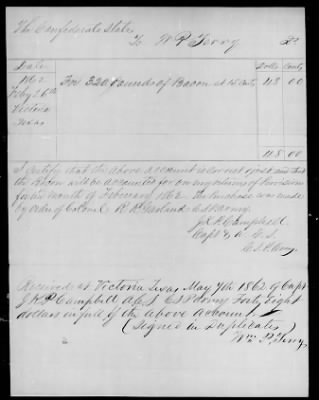 The Confederate States
To W P Terry Dr
Date Dolls Cents
1862 For 320 Pounds of Bacon at 15 Cents 48 00
Feby 26th
Victoria
Texas
48 00
I certify that the above account is correct & just and that
the Bacon will be accounted for on my returns of Provision
for the month of February 1862. The purchase was made
by order of Colonel R. R. Garland C.S. Army.
J. K. P. Campbell
Capt & A.C.S.
C.S.P. Army.
Received at Victoria Texas May 7th 1862 of Capt
J K P Campbell A.C.S C S P Army Forty Eight
dollars in full of the above account
(Signed in Duplicates)
Wm P. Terry